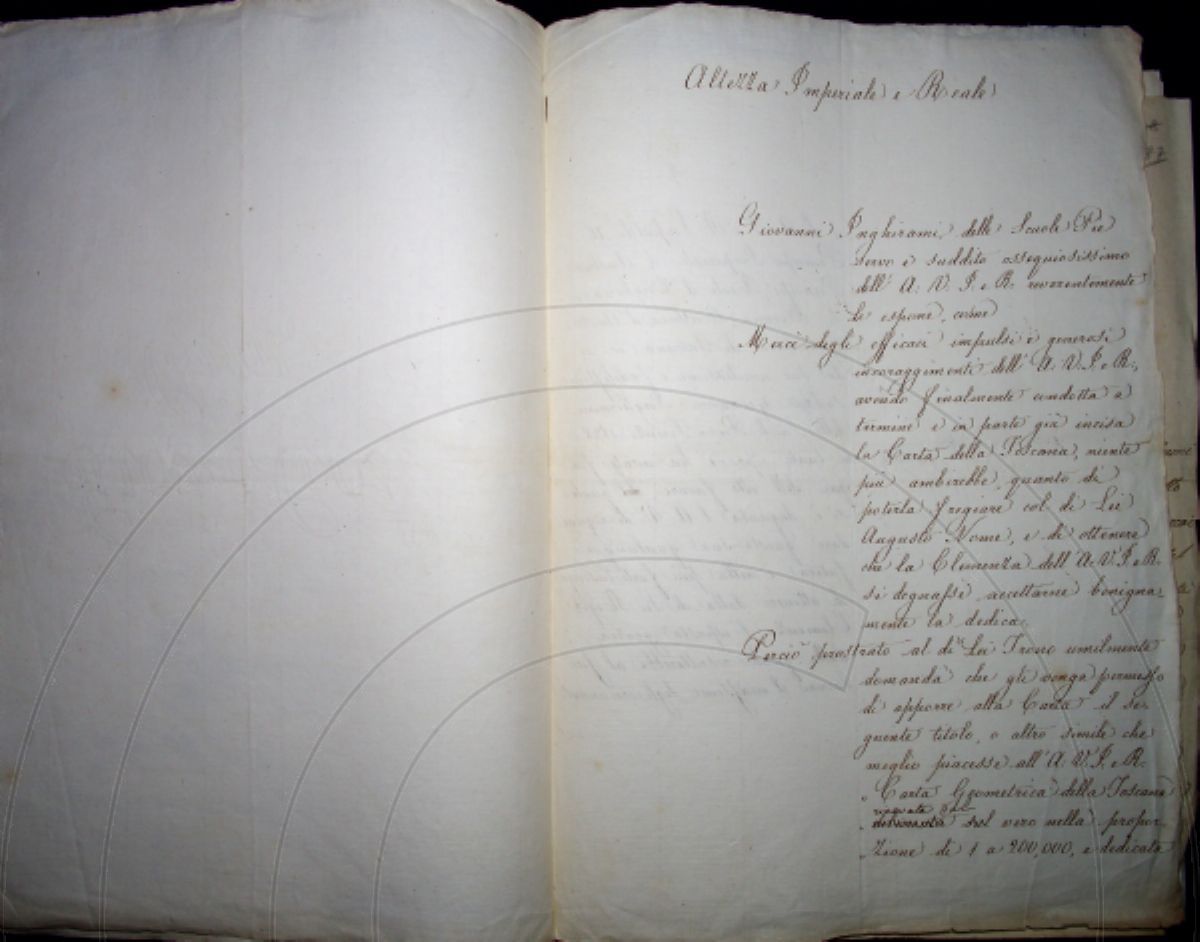 Altezza Imperiale e Reale
Giovanni Inghirami delle Scuole Pie
servo e suddito ossequiosissimo
dell' A. V. I. e R. reverentemente
Le espone, come
Mercè degli efficaci impulsi e generosi
incoraggimenti dell' A. V. I. e R.,
avendo finalmente condotta a
termine e in parte già incisa
la Carta della Toscana, niente
più ambirebbe quanto di
poterla fregiare col di Lei
Augusto Nome, e di ottenere
che la Clemenza dell' A. V. I. e R.
si degnasse accettarne benigna-
mente la dedica.
Perciò prostrato al di Lei Trono umilmente
domanda che gli venga permesso
di apporre alla Carta il se-
guente titolo, o altro simile che
meglio piacesse all' A. V. I. e R.
„ Carta Geometrica della Toscana
ricavata dal
„ vero nella propor-
„ zione di 1 a 200,000, e dedicata